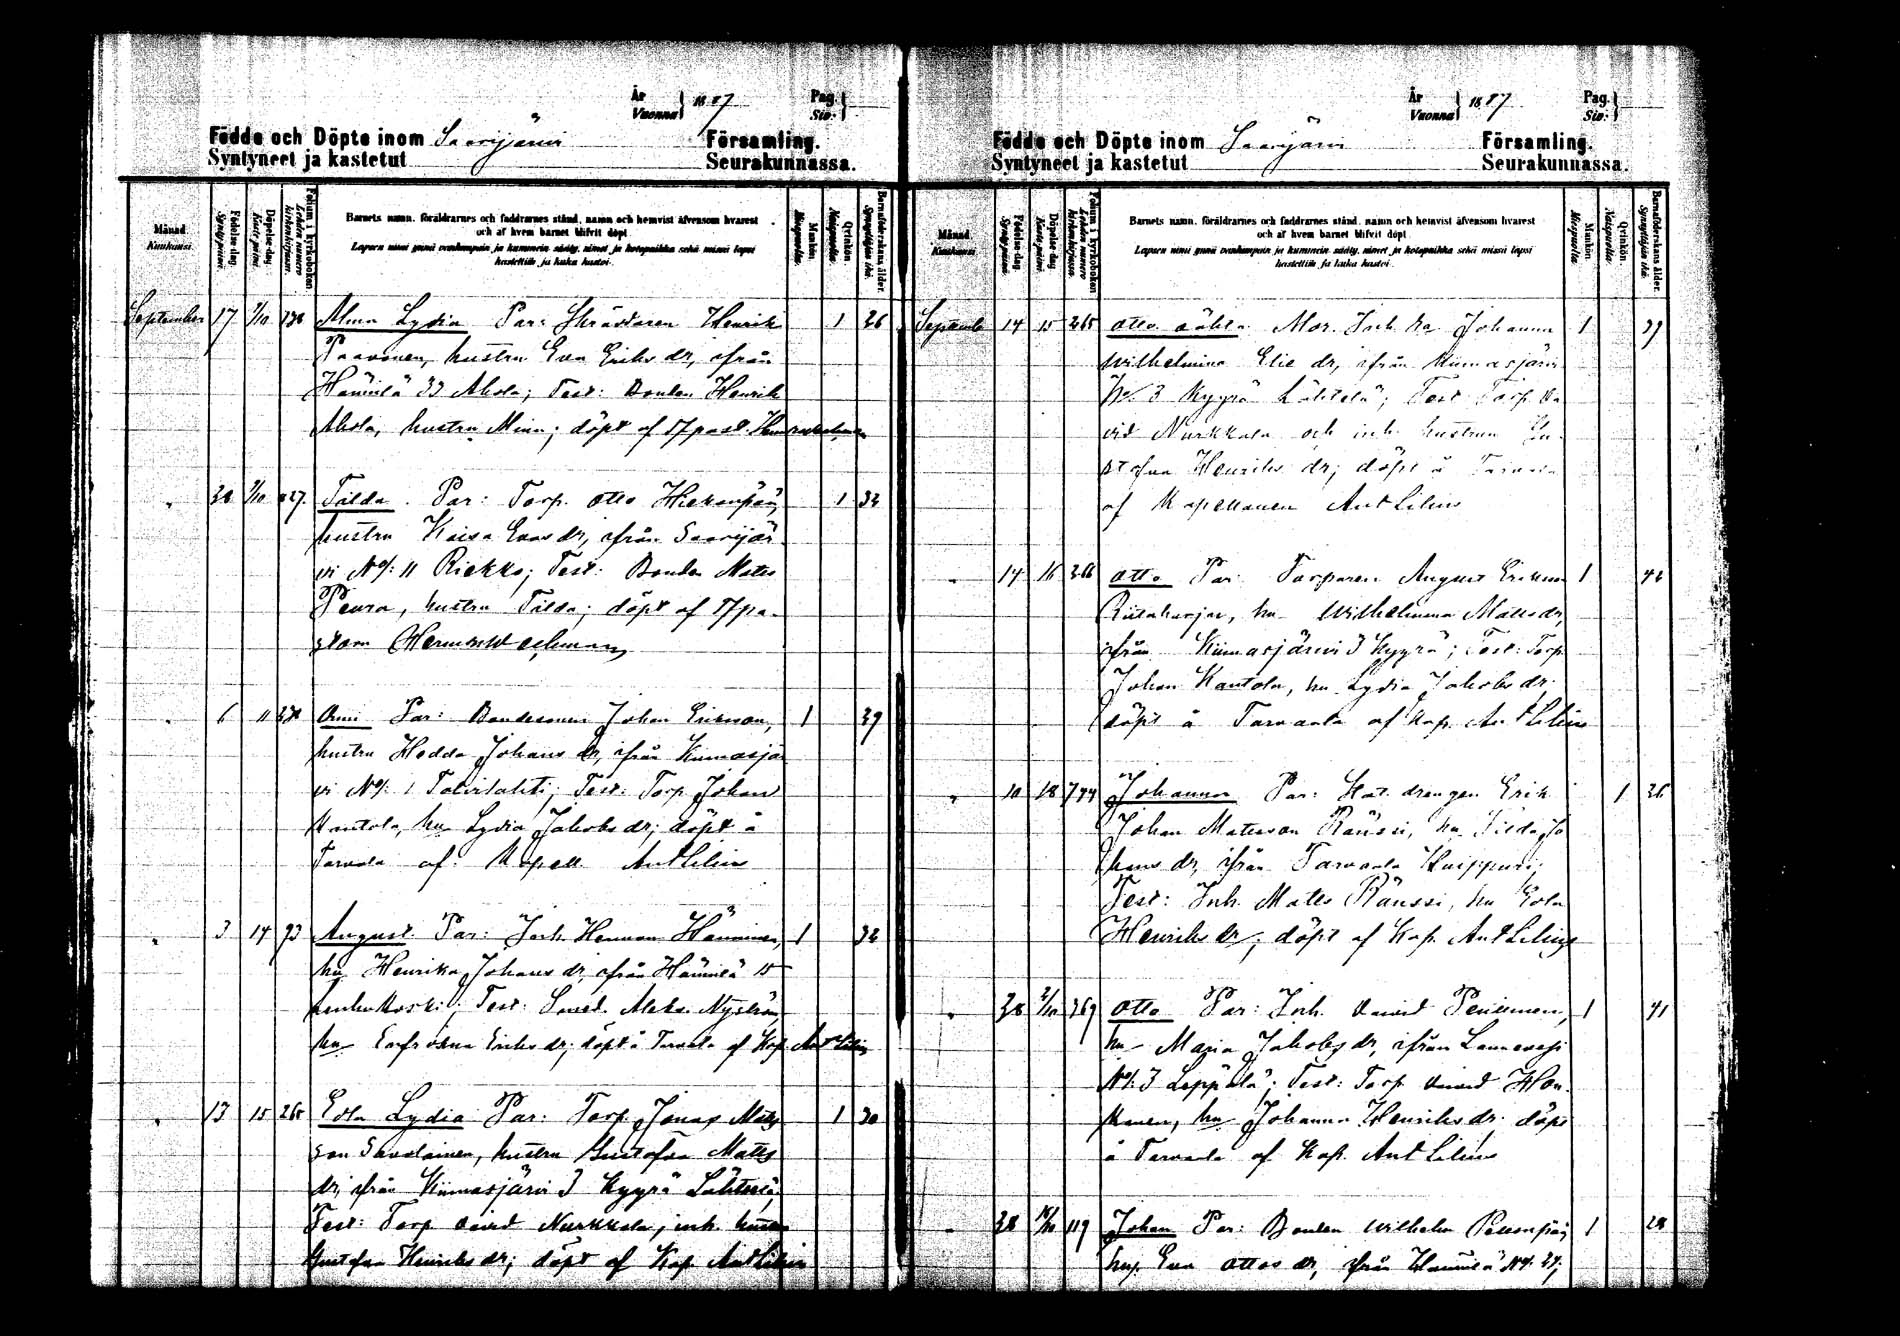 År
Vuonna } 1887
Pag.
Siv. }
Födde och Döpte inom Saarijärvi Församling.
Syntyneet ja kastetut Seurakunnassa.
Månad.
Kuukausi.
Födelse-dag.
Syntypäivä.
Döpelse-dag.
Kastepäivä.
Folium i kyrkoboken
Lehden numero kirkonkirjassa.
Barnets namn, föräldrarnes och faddrarnes stånd, namn och hemvist äfvensom hvarest
och af hvem barnet blifvit döpt.
Lapsen nimi ynnä vanhempain ja kummein sääty, nimet ja kotopaikka sekä missä lapsi
kastettiin ja kuka kastoi.
Mankön.
Miespuolia.
Qvinkön.
Naispuolia.
Barnaföderskans ålder.
Synnyttäjän ikä.
September 17 7/10 138 Alma Lydia Par: Skräddaren Henrik 1 26
Paavonen, hustru Eva Eriks dr, ifrån
Hännilä 33 Ahola; Test: Bonden Henrik
Ahola, hustru Mina; döpt af Past.
" 7/10 Tilda. Par: Torp. Otto 1 32
hustru Kaisa Evas dr, ifrån Saarijär
vi No/: 11 Riekko; Test: Bonden Mats
Peura, hustru Tilda; döpt af Pa-
storn
" 6 11 Par: Bondesonen Johan Erikson, 1 39
hustru Hedda Johans dr, ifrån Kiimasjär
vi No/: 1 Talvilahti; Test: Torp. Johan
Kantola, hu Lydia Jakobs dr; döpt å
Tarvala af Kapell. Ant Lilius
" 3 14 93 August Par: Inh. Herman Hänninen, 1 32
hu Henrika Johans dr, ifrån Hännilä 15
Test: Smed. Aleks. Nyström,
hu Eriks dr; döpt å Tarvala af Kap. Ant Lilius
" 13 15 265 Eva Lydia Par: Torp. Jonas Mats 1 30
son Savolainen, hustru Gustafva Matts
dr, ifrån Kiimasjärvi 3 Kyyrä Lähtelä;
Test: Torp. David Nurkkala, inh. hustru
Gustafva Henriks dr; döpt af Kap. Ant Lilius
År
Vuonna } 1887
Pag.
Siv. }
Födde och Döpte inom Saarijärvi Församling.
Syntyneet ja kastetut Seurakunnassa.
Månad.
Kuukausi.
Födelse-dag.
Syntypäivä.
Döpelse-dag.
Kastepäivä.
Folium i kyrkoboken
Lehden numero kirkonkirjassa.
Barnets namn, föräldrarnes och faddrarnes stånd, namn och hemvist äfvensom hvarest
och af hvem barnet blifvit döpt.
Lapsen nimi ynnä vanhempain ja kummein sääty, nimet ja kotopaikka sekä missä lapsi
kastettiin ja kuka kastoi.
Mankön.
Miespuolia.
Qvinkön.
Naispuolia.
Barnaföderskans ålder.
Synnyttäjän ikä.
14 15 265 Otto oäkta Mor. Inh. Johanna 1
Wilhelmina Elie dr, ifrån Kiimasjärvi
No/: 3 Kyyrä Lähtelä; Test Torp.
vid Nurkkala och inh. hustrun Gu-
stafva Henriks dr; döpt å
af Kapellanen Ant Lilius
" 14 16 266 Otto Par: Torparen August Erikson 1 42
Riitaharju, hu Wilhelmina Matts dr,
ifrån Kiimasjärvi 3 Kyyrä; Test: Torp.
Johan Kantola, hu Lydia Jakobs dr;
döpt å Tarvaala af Kap. Ant Lilius
" 10 18 Johanna Par: Stat. drengen Erik 1 26
Johan Matsson Ränssi, hu Tilda Jo
hans dr, ifrån Tarvaala
Test: Inh. Matts Ränssi, hu Eva
Henriks dr; döpt af Kap. Ant Lilius
" 28 2/10 269 Otto Par: Inh. David 1 41
hu Maria Jakobs dr, ifrån Lannevesi
No/: 3 Leppälä; Test: Torp. David Hon-
konen, hu Johanna Henriks dr. döpt
å Tarvaala af Kap. Ant Lilius
" 28 119 Johan Par: Bonden Wilhelm 1 28
hu. Eva Ottos dr, ifrån Hännilä